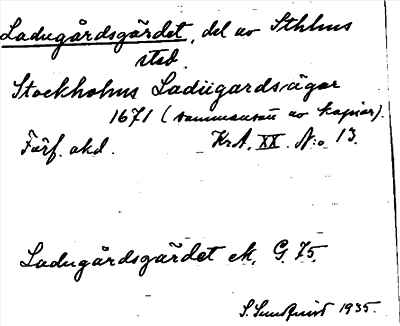 Ladugårdsgärdet, del av Sthlms
stad.
Stockholms Ladugårdsägor
1671 (sammansatt av kopior).
Förf. okd. Kr.A. XX. N:o 13.
Ladugårdsgärdet ek. G. 75.
S. Sundquist 1935.